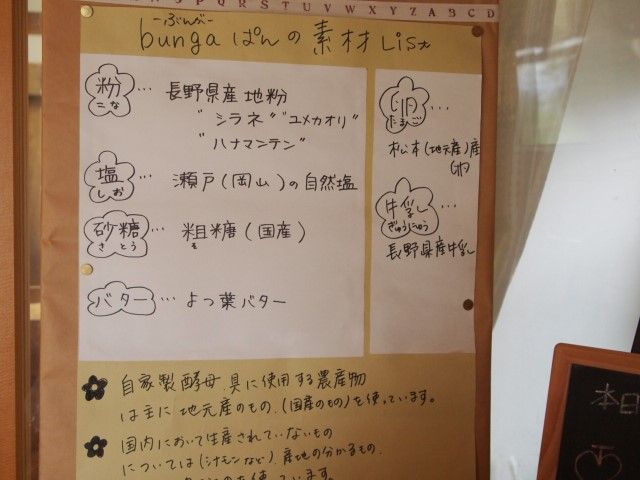 P Q R S T U V W X Y Z A B C D
-ぶんが-
bunga ぱんの素材List
粉 … 長野県産地粉
こな
"シラネ" "ユメカオリ"
"ハナマンテン"
塩 … 瀬戸(岡山)の自然塩
しお
砂糖 … 粗糖(国産)
さとう そ
バター … よつ葉バター
卵 …
たまご
松本(地元産)産
卵
牛乳 …
ぎゅうにゅう
長野県産牛乳
自家製酵母、具に使用する農産物
は主に地元産のもの、(国産のもの)を使っています。
国内において生産されていないもの
については(シナモンなど)、産地の分かるもの、
を使っています。
本日